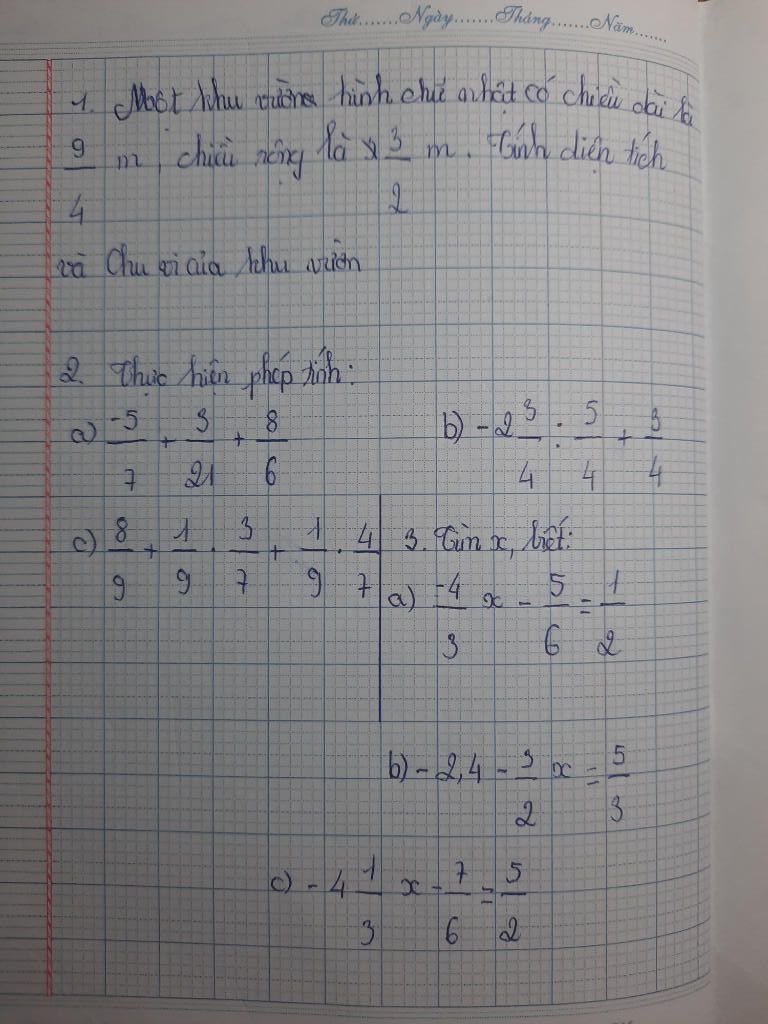 Thứ.......Ngày.......Tháng.......Năm.......
1. Một khu vườn hình chữ nhật có chiều dài là
9/4 m, chiều rộng là 3/2 m. Tính diện tích
và Chu vi của khu vườn
2. Thực hiện phép tính:
a) -5/7 + 3/21 + 8/6 b) -2 3/4 : 5/4 + 3/4
c) 8/9 + 1/9 . 3/7 + 1/9 . 4/7 3. Tìm x, biết:
a) -4/3 x - 5/6 = 1/2
b) -2,4 - 3/2 x = 5/3
c) -4 1/3 x - 7/6 = 5/2